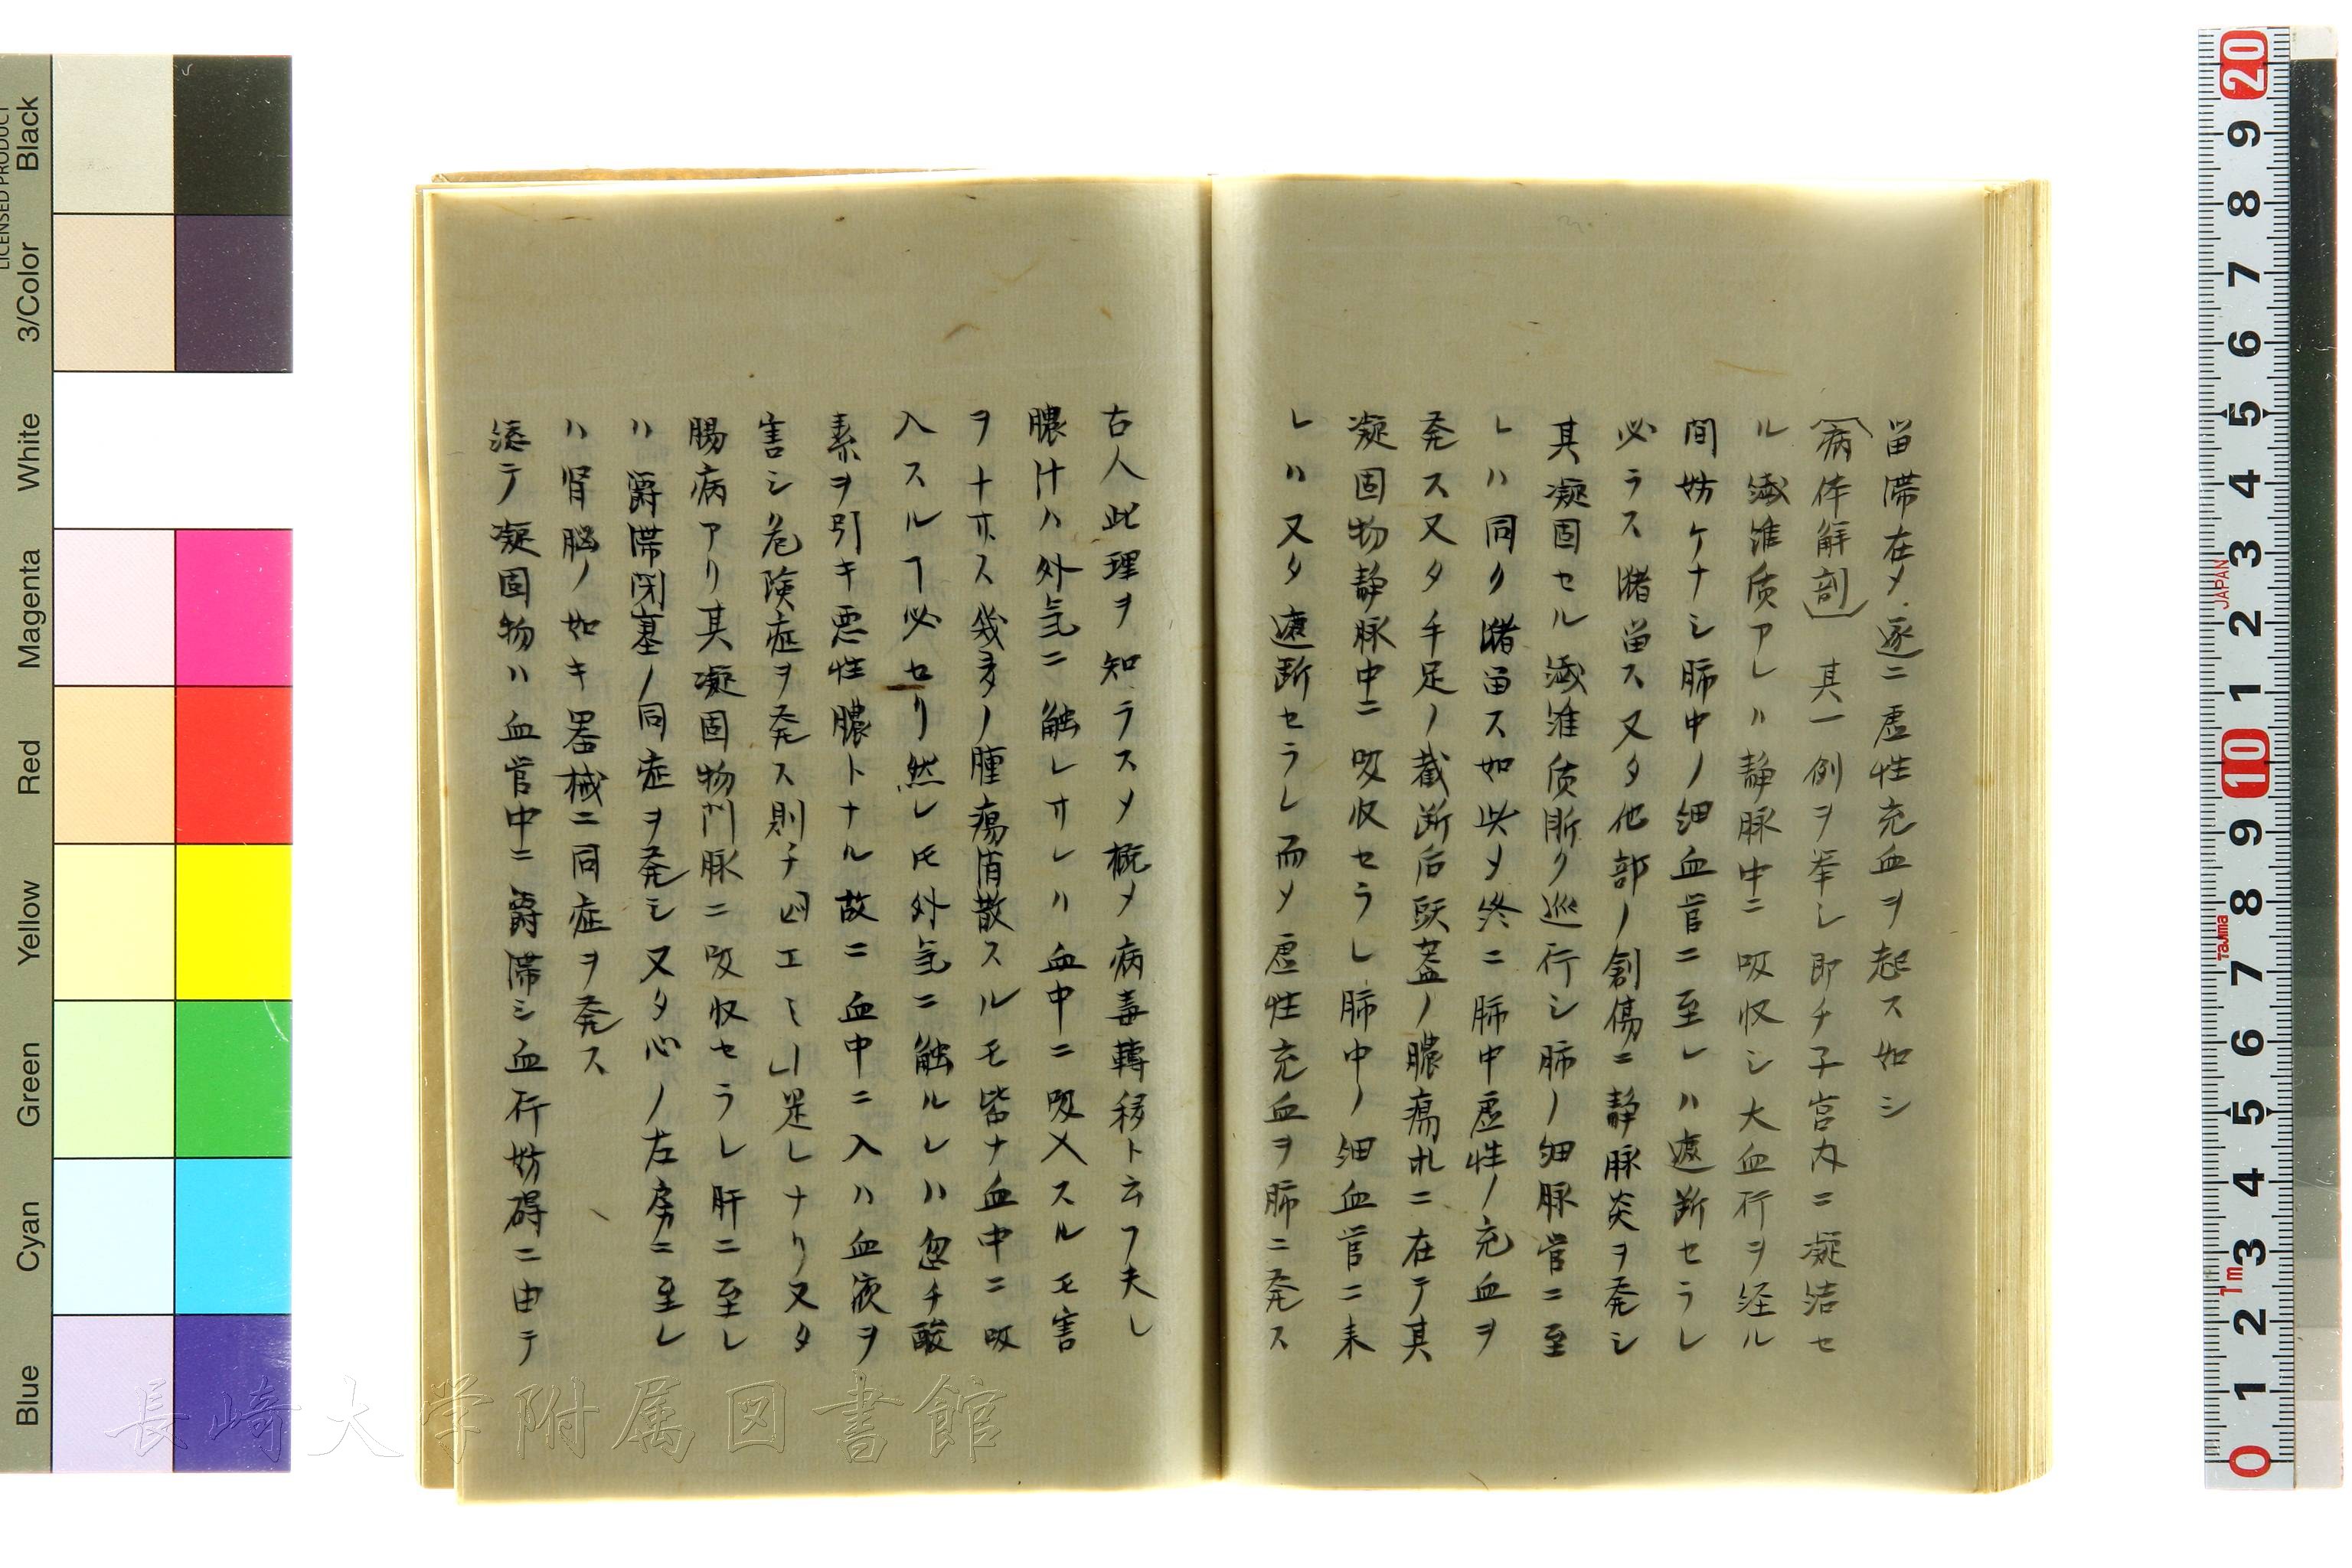 留滞在メ遂ニ虚性充血ヲ起ス如シ
(病体解剖) 其一例ヲ挙シ即チ子宮内ニ凝結セ
ル纎維质アレハ静脉中ニ吸収シ大血行ヲ経ル
间妨ケナシ肺中ノ细血管ニ至レハ遮断セラレ
必ラス瀦留ス又タ他部ノ創傷ニ静脉炎ヲ発シ
其凝固セル纎維质斯ク巡行シ肺ノ细脉管ニ至
レハ同ク瀦留ス如此メ終ニ肺中虚性ノ充血ヲ
発ス又タ手足ノ截断后頭蓋ノ膿瘍扎ニ在テ其
凝固物静脉中ニ吸収セラレ肺中ノ细血管ニ来
レハ又タ遮断セラレ而メ虚性充血ヲ肺ニ発ス
古人此理ヲ知ラスメ概メ病毒轉移ト云フ夫レ
膿汁ハ外気ニ触レサレハ血中ニ吸入スルモ害
ヲナサス幾多ノ腫瘍消散スルモ皆ナ血中ニ吸
入スルヿ必セリ然レ𪜈外気ニ触ルレハ忽チ酸
素ヲ引キ悪性膿トナル故ニ血中ニ入ハ血液ヲ
害シ危険症ヲ発ス則チ エミー是レナリ又タ
腸病アリ其凝固物門脉ニ吸収セラレ肝ニ至レ
ハ欝滞閉塞ノ同症ヲ発シ又タ心ノ左房ニ至レ
ハ腎脳ノ如キ器械ニ同症ヲ発ス
総テ凝固物ハ血管中ニ欝滞シ血行妨碍ニ由テ
Black
3/Color
White
Magenta
Red
Yellow
Green
Cyan
Blue
LICENSED PRODUCT
長崎大学附属図書館
20
9
8
7
6
5
4
3
2
1
10
9
8
7
6
5
4
3
2
1
0
JAPAN
Tajima
1m